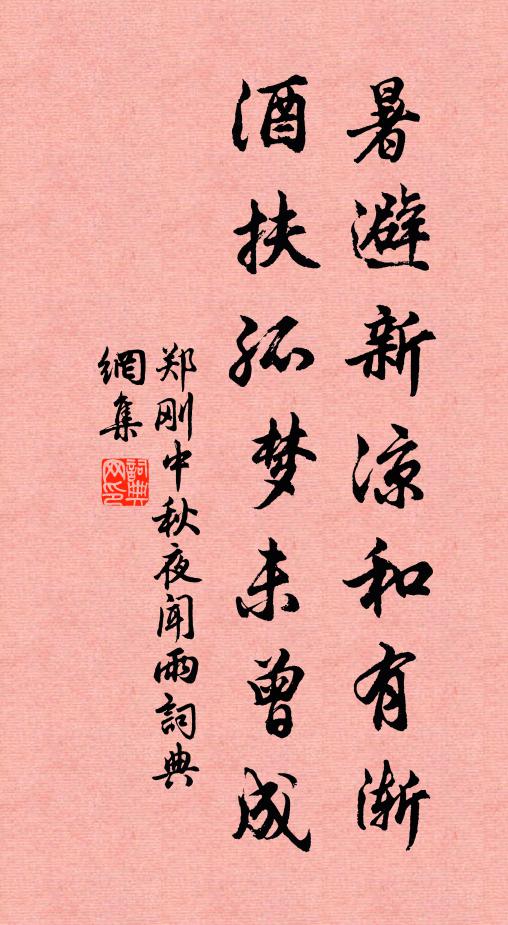 暑避新凉和有渐
酒扶孤梦未曾成
郑刚中秋夜闻雨詞典
網集
詞典
网印